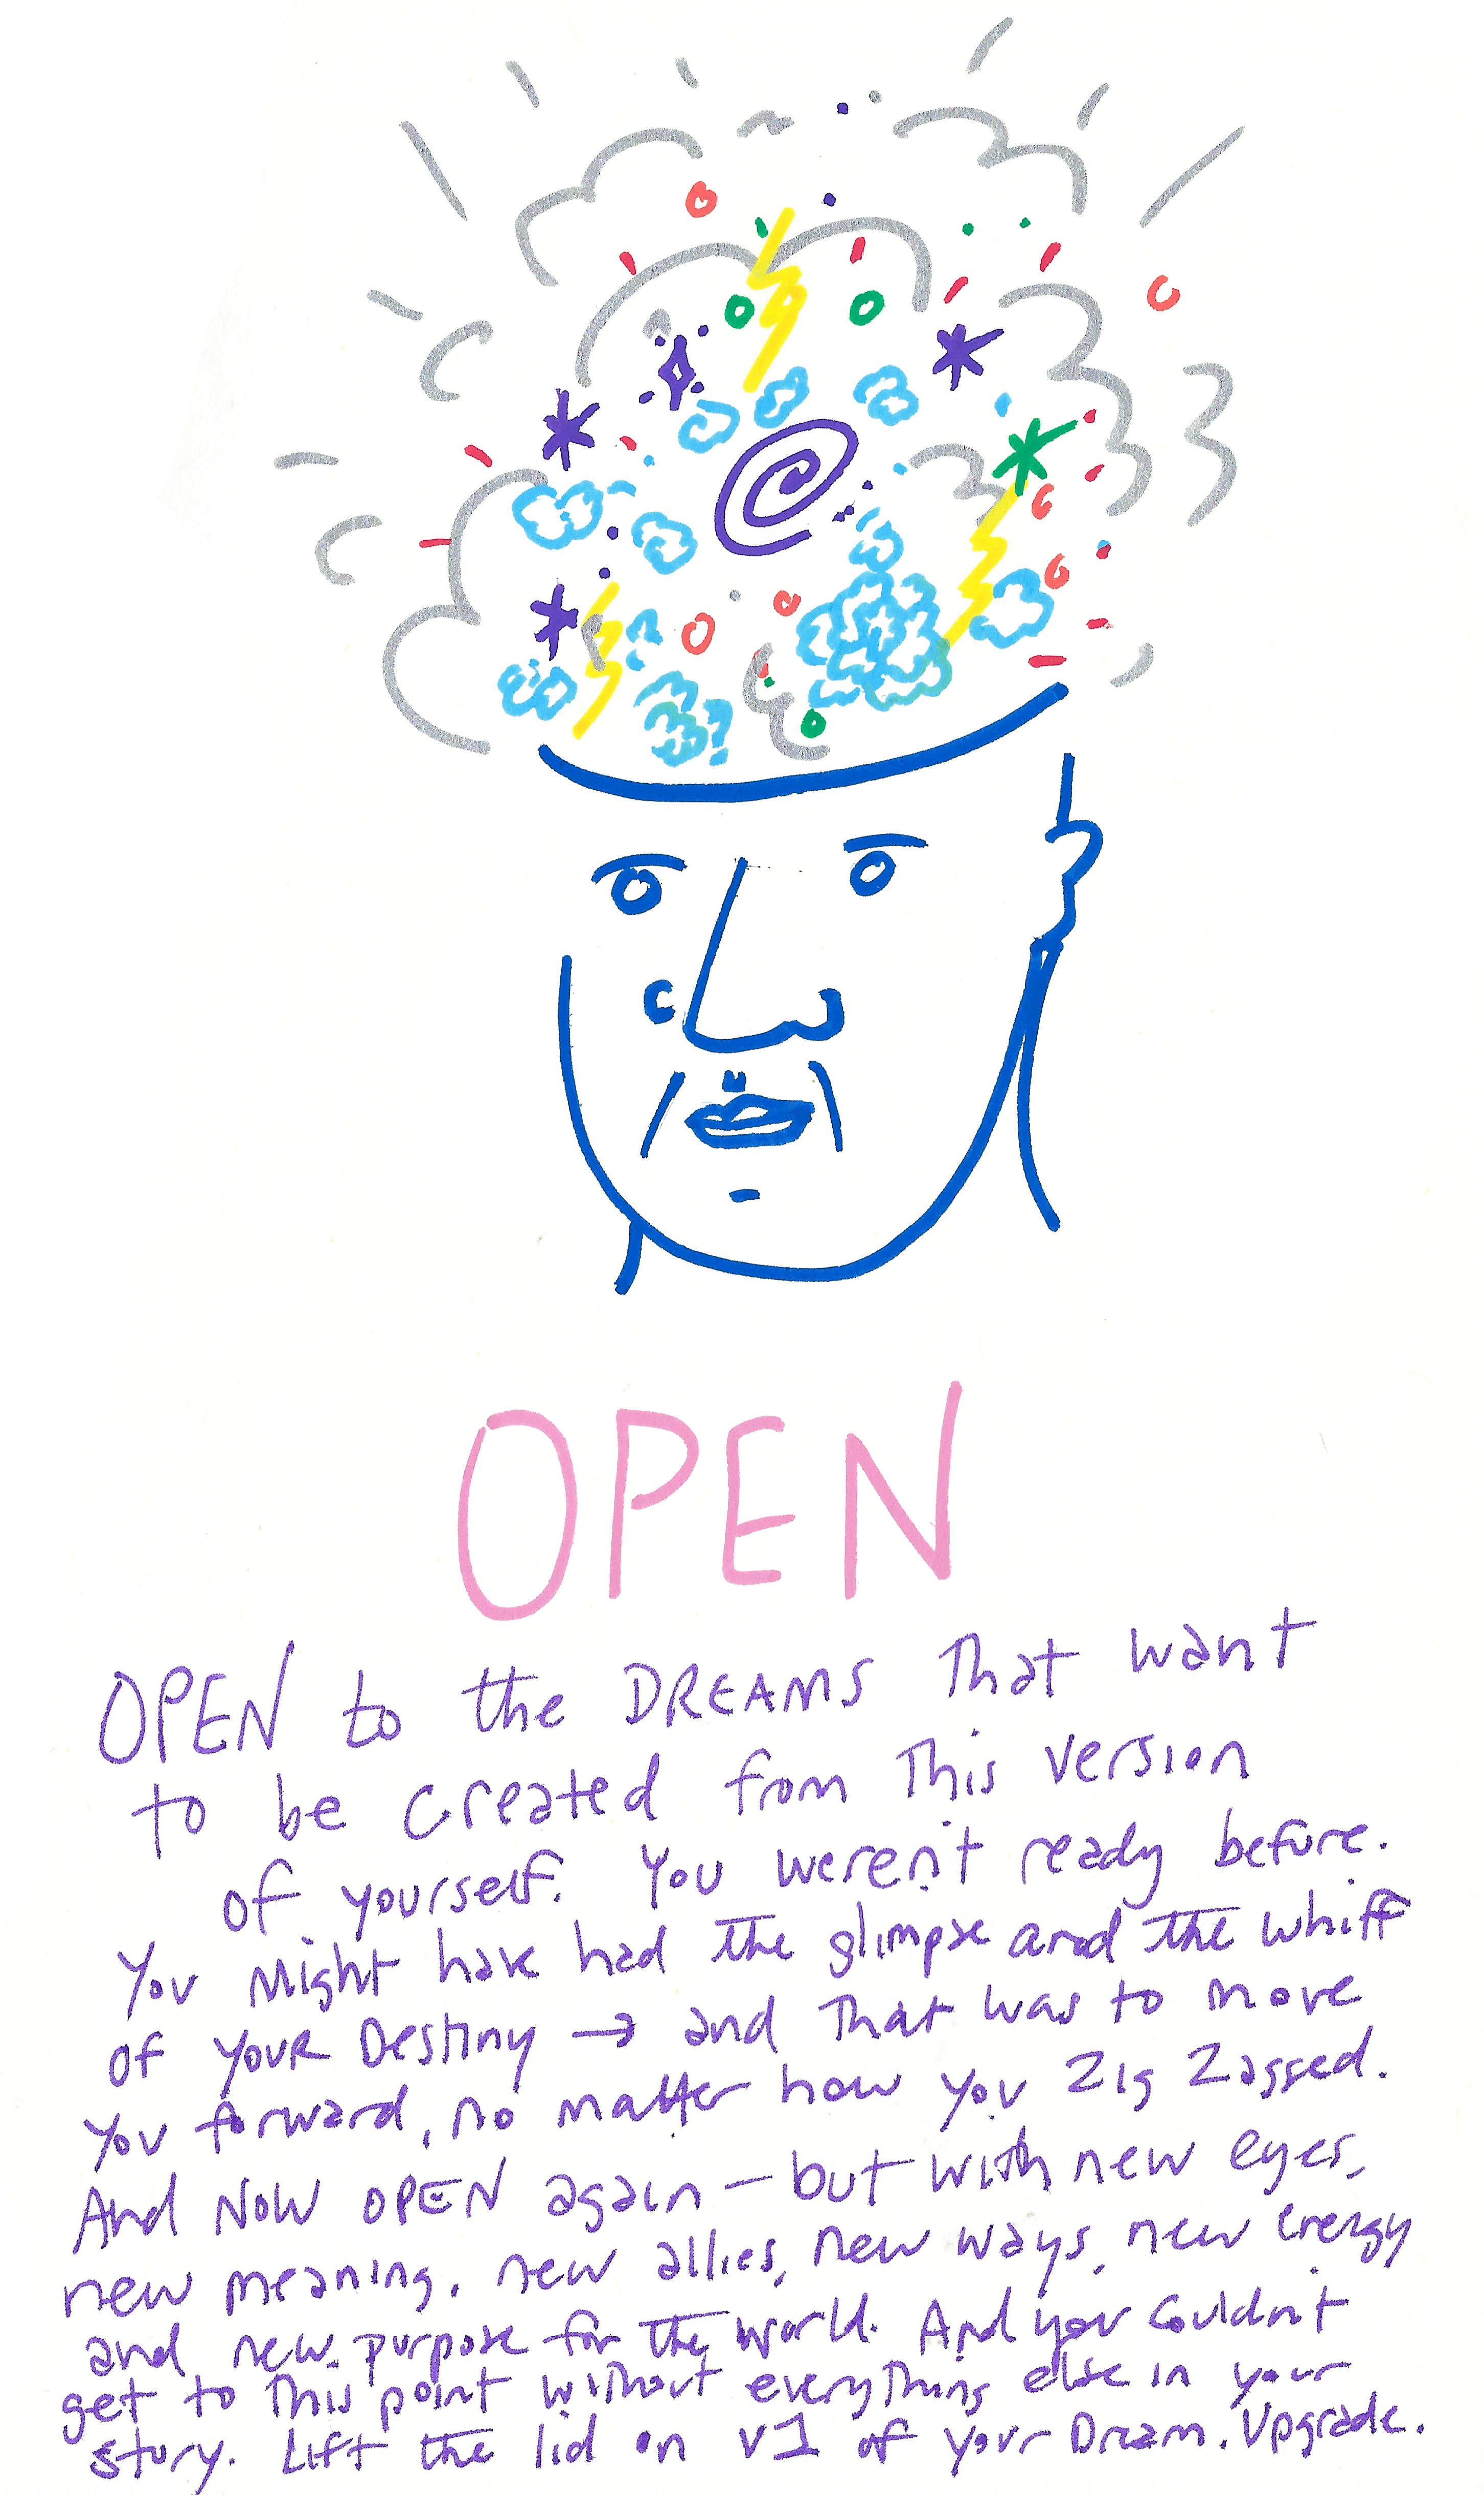 OPEN
OPEN to the DREAMS That want
to be created from This version
of yourself. You weren't ready before.
You Might have had the glimpse and the whiff
of YOUR Destiny → and That was to move
you forward, no matter how you Zig Zagged.
And NOW OPEN again – but with new eyes,
new meaning, new allies, new ways, new energy
and new purpose for the world. And you couldn't
get to This point without everything else in your
story. Lift the lid on v1 of your Dream. Upgrade.